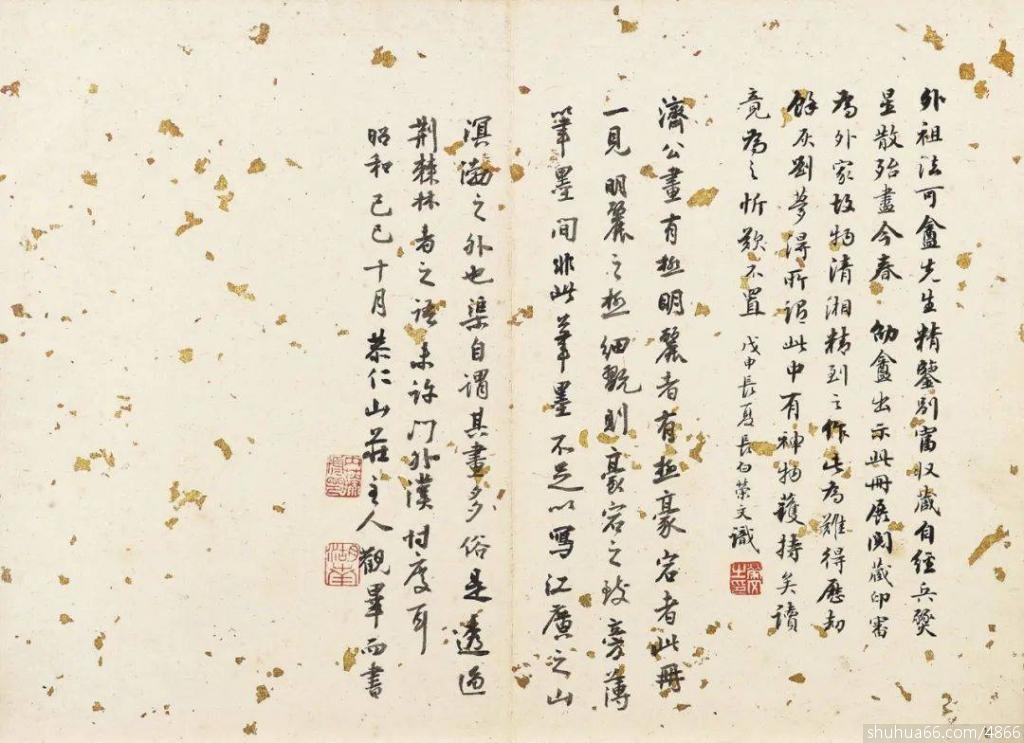 外祖法可盦先生精鑒別富收藏自經兵燹
星散殆盡今春劬盦出示此冊展閱藏印審
為外家故物清湘精到之作此為難得歷劫
餘灰劉夢得所謂此中有神物護持矣讀
竟為之忻歎不置 戊申長夏長白榮文識
濟公畫有極明麗者有極豪宕者此冊
一見明麗之極細翫則豪宕之致旁薄
筆墨間非此筆墨不足以寫江廣之山
溟渤之外也渠自謂其畫多俗是透過
荊棘林者之語未許門外漢忖度耳
昭和己巳十月恭仁山莊主人觀畢而書
shuhua66.com/4866